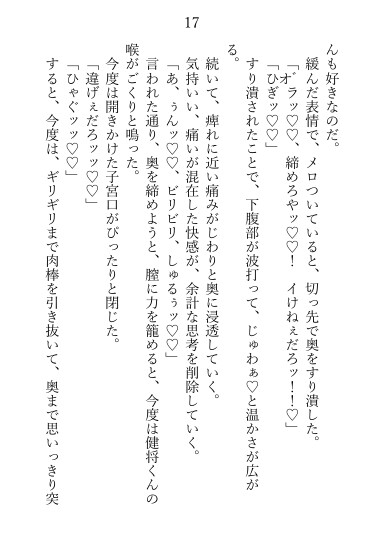 17
んも好きなのだ。
緩んだ表情で、メロついていると、切っ先で奥をすり潰した。
「オ゛ラッ♡♡、締めろやッ♡♡！　イけねぇだろッ！！♡」
「ひぎッ♡♡」
すり潰されたことで、下腹部が波打って、じゅわぁ♡と温かさが広が
る。
続いて、痺れに近い痛みがじわりと奥に浸透していく。
気持いい、痛いが混在した快感が、余計な思考を削除していく。
「あ、ぅんッ♡♡、ビリビリ、しゅるぅッ♡♡」
言われた通り、奥を締めようと、膣に力を籠めると、今度は健将くんの
喉がごくりと鳴った。
今度は開きかけた子宮口がぴったりと閉じた。
「違げぇだろッッ♡♡」
「ひゃぐッッ♡♡」
すると、今度は、ギリギリまで肉棒を引き抜いて、奥まで思いっきり突